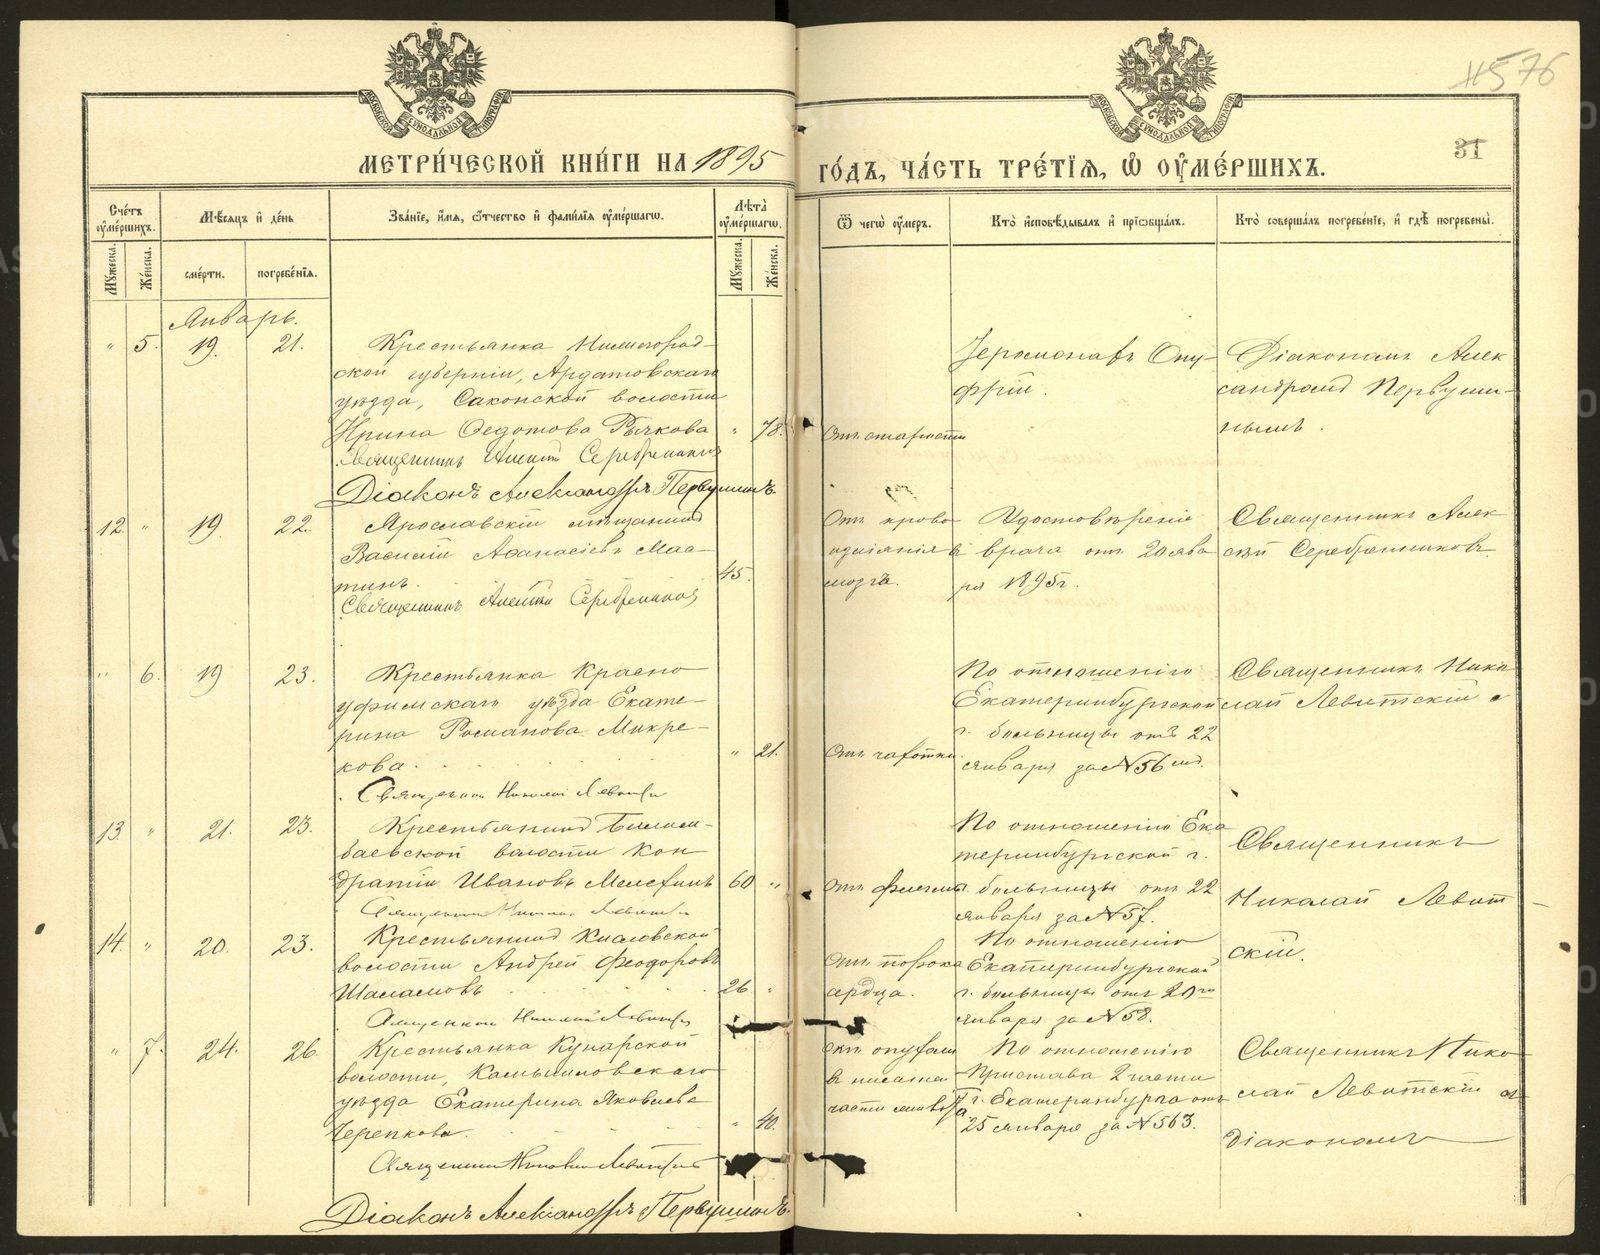 576
31
МЕТРИ́ЧЕСКОЙ КНИ́ГИ НА 1895
ГО́ДЪ, ЧА́СТЬ ТРЕ́ТЇЯ, Ѡ҆ ОУ҆МЕ́РШИХЪ.
Сче́тъ оу҆ме́ршихъ.
Мꙋжеска. Же́нска.
Мѣ́сяцъ и҆ де́нь
сме́рти. погребе́нїя.
Зва́нїе, и҆́мя, ѻ҆́тчество и҆ фами́лїя оу҆ме́ршагѡ.
Лѣта̀ оу҆ме́ршагѡ.
Мꙋжеска. Же́нска.
Ѿ чегѡ̀ оу҆́меръ.
Кто̀ и҆сповѣ́дывалъ и҆ прїѡбща́лъ.
Кто̀ соверша́лъ погребе́нїе, и҆ гдѣ̀ погребены̀.
Январь.
" 5. 19. 21.
Крестьянка Нижегород-
ской губерніи, Ардатовскаго
уѣзда, Саконской волости
Ирина Ѳедотова Рычкова " 78.
Священникъ Алексій Серебренниковъ
Діаконъ Александръ Первушинъ.
Отъ старости
Іеромонахъ Ону-
фрій.
Діакономъ Алек
сандромъ Первуши-
нымъ.
12. " 19. 22.
Ярославскій мѣщанинъ
Василій Аѳанасіевъ
45.
Священникъ Алексій Серебренниковъ
Отъ крово
изліянія въ
мозгъ.
Удостовѣреніе
врача отъ 20 янва
ря 1895 г.
Священникъ Алек
сѣй Серебренниковъ.
" 6. 19 23.
Крестьянка Красно
уфимскаго уѣзда Екате-
рина Романова Микре-
кова. " 21.
Священникъ Николай Левитскій
Отъ чахотки.
По отношенію
Екатеринбургской
г. больницы отъ 22
января за №56
Священникъ Нико
лай Левитскій с
13. " 21. 23.
Крестьянинъ Билим-
баевской волости Кон
дратій Ивановъ 60 "
Священникъ Николай Левитскій
По отношенію Ека
теринбургской г.
больницы отъ 22
января за №57.
Священникъ
Николай Левит
скій.
14. " 20. 23.
Крестьянинъ Кисловской
волости Андрей Ѳеодоровъ
Шаламовъ 26 "
Священникъ Николай Левитскій
Отъ порока
сердца.
По отношенію
Екатеринбургской
г. больницы отъ
января за №58.
" 7. 24. 26.
Крестьянка Кунарской
волости, Камышловскаго
уѣзда Екатерина Яковлева
Черепкова. " 40.
Священникъ Николай Левитскій
Діаконъ Александръ Первушинъ.
части живота
По отношенію
Пристава 2 части
г. Екатеринбурга отъ
25 января за №563.
Священникъ Нико
лай Левитскій съ
діакономъ